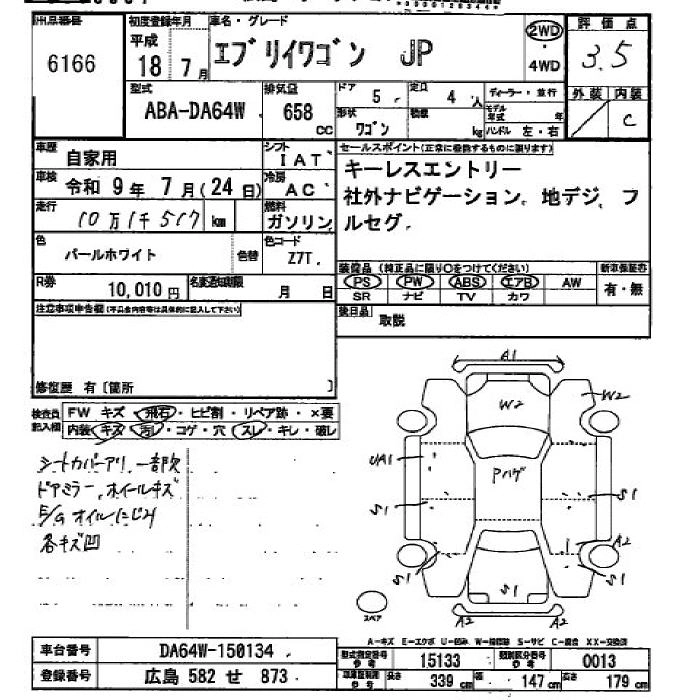 出品番号
6166
初度登録年月
平成
18 7月
車名・グレード
エブリイワゴン JP
2WD
4WD
評価点
3.5
外装 内装
C
型式
ABA-DA64W
排気量
658 cc
ドア 5
定員 4人
形状
ワゴン
積載 kg
ディーラー・並行
モデル年式 年
ハンドル 左・右
車歴
自家用
シフト
IAT
車検
令和 9年 7月(24日)
冷房
AC
走行
10万1千517 km
燃料
ガソリン
色
パールホワイト
色替
色コード
Z7T
セールスポイント(正常に作動するものに限ります)
キーレスエントリー
社外ナビゲーション、地デジ、フ
ルセグ、
R券
10,010円
名変通知期限
月 日
装備品(純正品に限り○をつけてください)
新車保証書
PS PW ABS エアB AW
SR ナビ TV カワ
有・無
後日品
取説
注意事項申告欄(不具合内容等は具体的に記入して下さい)
修復歴 有〔箇所 〕
検査員記入欄
FW キズ・飛石・ヒビ割・リペア跡・×要
内装・キズ・汚レ・コゲ・穴・スレ・キレ・破レ
シートカバーアリ、一部欠
ドアミラー、ホイールキズ
E/Gオイルにじみ
各キズ凹
A1
W2
W2
UA1
Pハゲ
S1
S1
A2
S1
S1
S1
A2
A2
スペア
A-キズ E-エクボ U-凹み W-補修跡 S-サビ C-腐食 XX-交換済
車台番号
DA64W-150134
登録番号
広島 582 せ 873
型式指定番号 参考
15133
類別区分番号 参考
0013
車庫証明用 参考
長さ 339 cm
幅 147 cm
高さ 179 cm